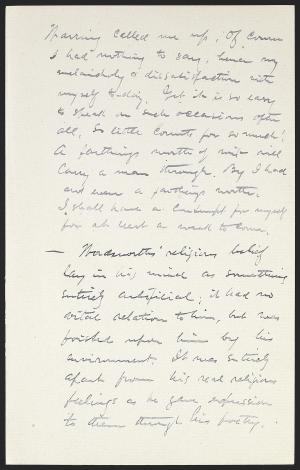 Warning called me up. Of course
I had nothing to say, hence my
melancholy & dissatisfaction with
myself today. Yet it is so easy
to speak on such occasions after
all. So little counts for so much!
A farthings worth of wit will
carry a man through. But I had
not even a farthings worth.
I shall have a contempt for myself
for at least a week to come.
— Wordsworths' religious belief
lay in his mind as something
entirely artificial; it had no
vital relation to him, but was
foisted upon him by his
environment. It was entirely
apart from his real religious
feelings as he gave expression
to them through his poetry.